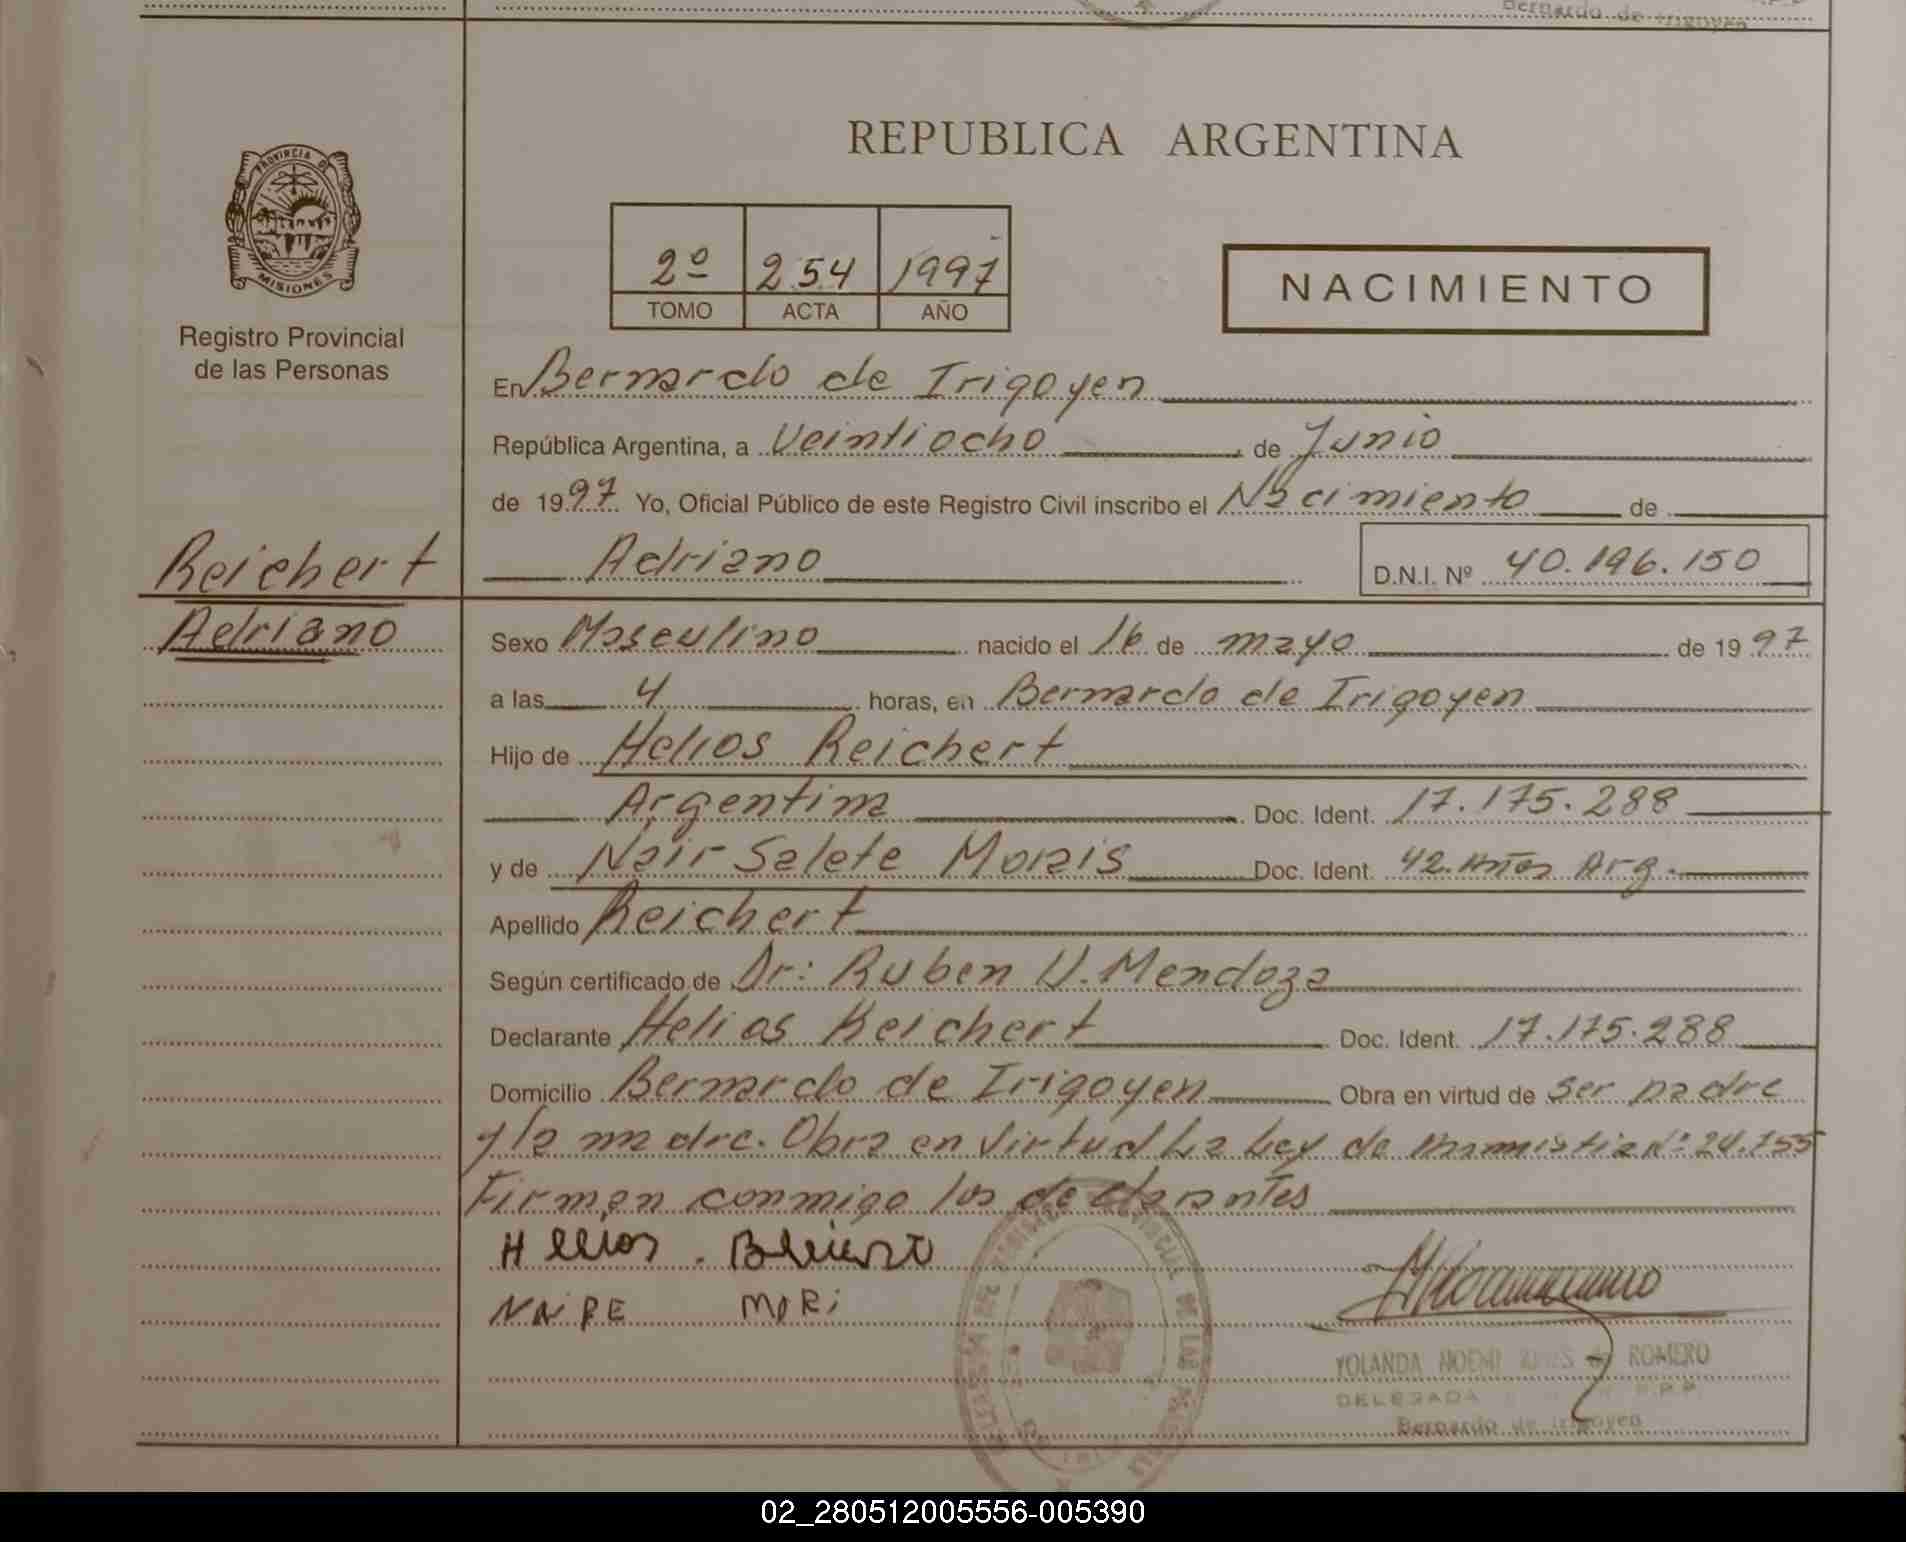 Bernardo de Irigoyen
REPUBLICA ARGENTINA
PROVINCIA DE
MISIONES
Registro Provincial
de las Personas
2º 254 1997
TOMO ACTA AÑO
NACIMIENTO
En Bernardo de Irigoyen
República Argentina, a Veintiocho de Junio
de 1997 Yo, Oficial Público de este Registro Civil inscribo el Nacimiento de
Reichert
Adriano
Adriano D.N.I. Nº 40.196.150
Sexo Masculino nacido el 16 de mayo de 1997
a las 4 horas, en Bernardo de Irigoyen
Hijo de Helios Reichert
Argentina Doc. Ident. 17.175.288
y de Nair Salete Morais Doc. Ident. 42. Años Arg.
Apellido Reichert
Según certificado de Dr: Ruben U. Mendoza
Declarante Helios Reichert Doc. Ident. 17.175.288
Domicilio Bernardo de Irigoyen Obra en virtud de ser padre
y la madre. Obra en Virtud La Ley de Nº 24.755
Firman conmigo los declarantes
Helios
NAIRE MORi
YOLANDA NOEMI de ROMERO
DELEGADA R.P.P.
Bernardo de Irigoyen
02_280512005556-005390